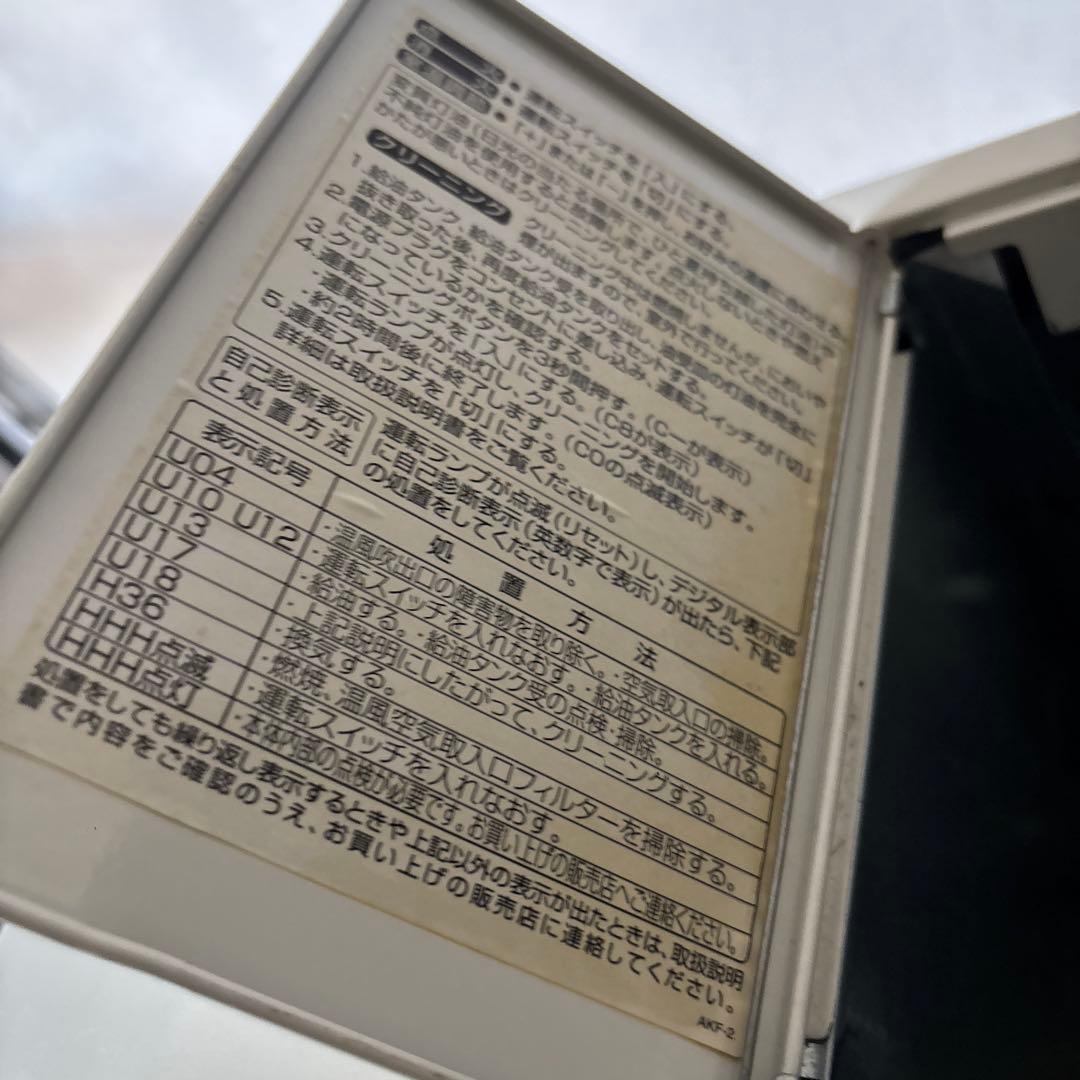 点火 ● 運転スイッチを「入」にする。
消火 ● 運転スイッチを「切」にする。
●「+」または「-」を押し、お好みの温度に合わせる。
変質灯油(日光の当たる場所で、ひと夏持ち越した灯油)や
不純灯油を使用すると故障します。点火しないときや燃え
かたが悪いときはクリーニングしてください。
クリーニング
クリーニング中は燃焼しませんが、においや
煙が出ますので、室外で行ってください。
1. 給油タンク、給油タンク受を取り出し、油受皿の灯油を完全に
抜き取った後、再度給油タンクをセットする。
2. 電源プラグをコンセントに差し込み、運転スイッチが「切」
になっているかを確認する。
3. クリーニングボタンを3秒間押す。(C—が表示)
4. 運転スイッチを「入」にする。(C8が表示)
・運転ランプが点灯し、クリーニングを開始します。
・約2時間後に終了します。(C0の点滅表示)
5. 運転スイッチを「切」にする。
詳細は取扱説明書をご覧ください。
自己診断表示
と処置方法
運転ランプが点滅(リセット)し、デジタル表示部
に自己診断表示(英数字で表示)が出たら、下記
の処置をしてください。
表示記号 処置方法
U04 ・温風吹出口の障害物を取り除く。・空気取入口の掃除。
U10 U12 ・運転スイッチを入れなおす。・給油タンクを入れる。
U13 ・給油する。・給油タンク受の点検・掃除。
U17 ・上記説明にしたがって、クリーニングする。
U18 ・換気する。
H36 ・燃焼、温風空気取入口フィルターを掃除する。
HHH点滅 ・運転スイッチを入れなおす。
HHH点灯 ・本体内部の点検が必要です。お買い上げの販売店へご連絡ください。
処置をしても繰り返し表示するときや上記以外の表示が出たときは、取扱説明
書で内容をご確認のうえ、お買い上げの販売店に連絡してください。
AKF-2